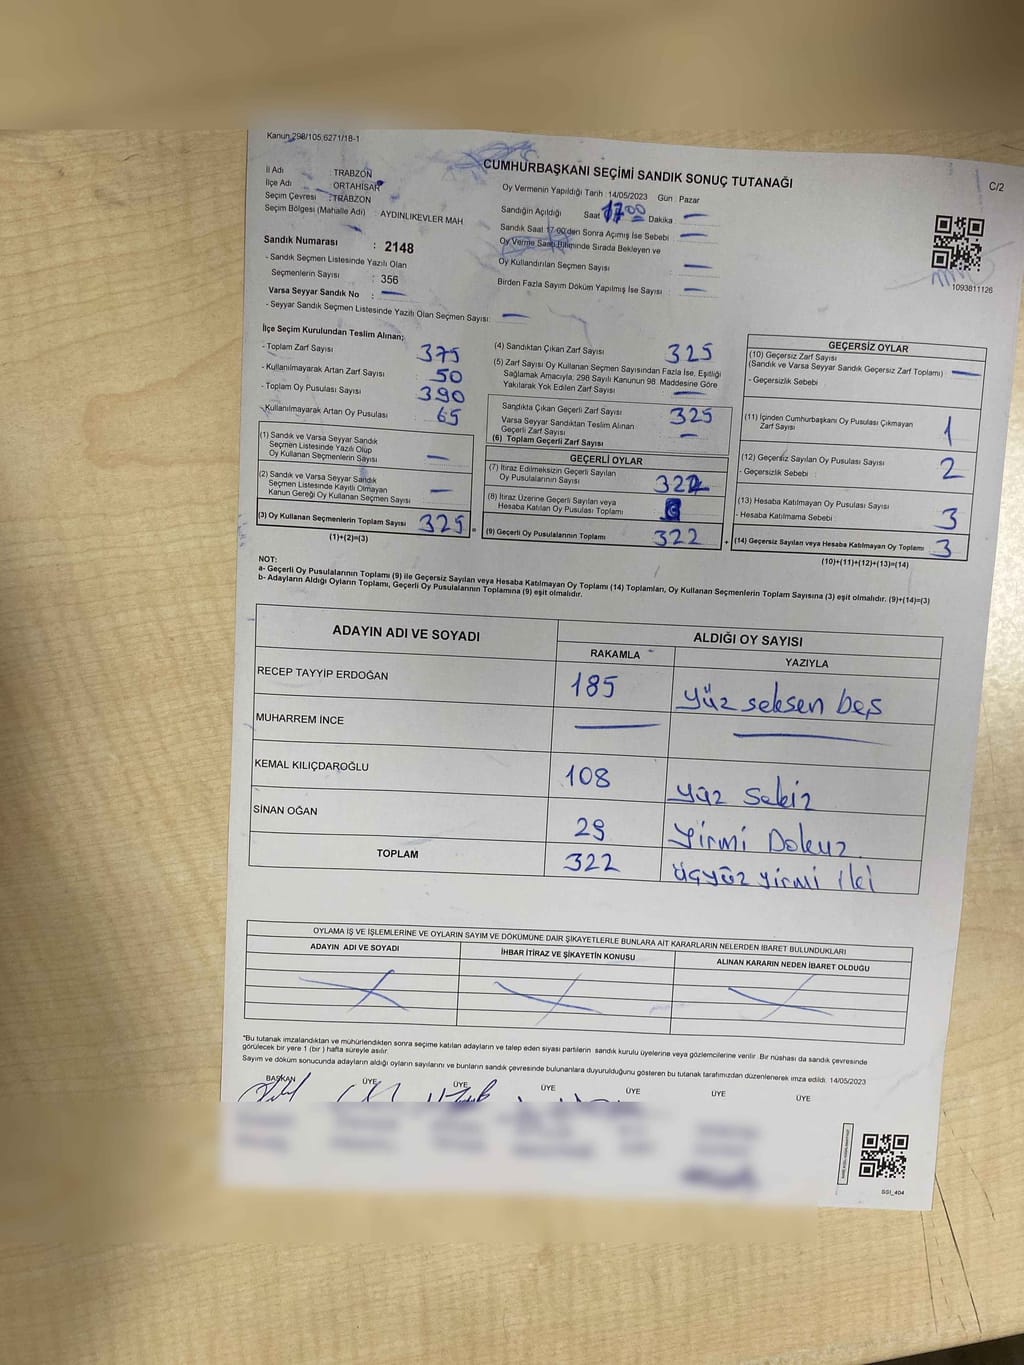 Kanun 298/105,6271/18-1
CUMHURBAŞKANI SEÇİMİ SANDIK SONUÇ TUTANAĞI
C/2
İl Adı : TRABZON
İlçe Adı : ORTAHİSAR
Seçim Çevresi : TRABZON
Seçim Bölgesi (Mahalle Adı) AYDINLIKEVLER MAH
Sandık Numarası : 2148
- Sandık Seçmen Listesinde Yazılı Olan
Seçmenlerin Sayısı : 356
Varsa Seyyar Sandık No : —
- Seyyar Sandık Seçmen Listesinde Yazılı Olan Seçmen Sayısı: —
Oy Vermenin Yapıldığı Tarih :14/05/2023 Gün : Pazar
Sandığın Açıldığı Saat 17 00 Dakika —
Sandık Saat 17:00'den Sonra Açımış İse Sebebi —
Oy Verme Saati Bitiminde Sırada Bekleyen ve
Oy Kullandırılan Seçmen Sayısı —
Birden Fazla Sayım Döküm Yapılmış İse Sayısı —
1093811126
İlçe Seçim Kurulundan Teslim Alınan;
- Toplam Zarf Sayısı 375
- Kullanılmayarak Artan Zarf Sayısı 50
- Toplam Oy Pusulası Sayısı 390
- Kullanılmayarak Artan Oy Pusulası 65
(1) Sandık ve Varsa Seyyar Sandık
Seçmen Listesinde Yazılı Olup
Oy Kullanan Seçmenlerin Sayısı —
(2) Sandık ve Varsa Seyyar Sandık
Seçmen Listesinde Kayıtlı Olmayan
Kanun Gereği Oy Kullanan Seçmen Sayısı —
(3) Oy Kullanan Seçmenlerin Toplam Sayısı 325 =
(1)+(2)=(3)
(4) Sandıktan Çıkan Zarf Sayısı 325
(5) Zarf Sayısı Oy Kullanan Seçmen Sayısından Fazla İse, Eşitliği
Sağlamak Amacıyla; 298 Sayılı Kanunun 98. Maddesine Göre
Yakılarak Yok Edilen Zarf Sayısı —
Sandıkta Çıkan Geçerli Zarf Sayısı 325
Varsa Seyyar Sandıktan Teslim Alınan
Geçerli Zarf Sayısı —
(6) Toplam Geçerli Zarf Sayısı
GEÇERLİ OYLAR
(7) İtiraz Edilmeksizin Geçerli Sayılan
Oy Pusulalarının Sayısı 322
(8) İtiraz Üzerine Geçerli Sayılan veya
Hesaba Katılan Oy Pusulası Toplamı
(9) Geçerli Oy Pusulalarının Toplamı 322 +
GEÇERSİZ OYLAR
(10) Geçersiz Zarf Sayısı
(Sandık ve Varsa Seyyar Sandık Geçersiz Zarf Toplamı) —
- Geçersizlik Sebebi
(11) İçinden Cumhurbaşkanı Oy Pusulası Çıkmayan
Zarf Sayısı 1
(12) Geçersiz Sayılan Oy Pusulası Sayısı 2
- Geçersizlik Sebebi :
(13) Hesaba Katılmayan Oy Pusulası Sayısı 3
- Hesaba Katılmama Sebebi :
(14) Geçersiz Sayılan veya Hesaba Katılmayan Oy Toplamı 3
(10)+(11)+(12)+(13)=(14)
NOT:
a- Geçerli Oy Pusulalarının Toplamı (9) ile Geçersiz Sayılan veya Hesaba Katılmayan Oy Toplamı (14) Toplamları, Oy Kullanan Seçmenlerin Toplam Sayısına (3) eşit olmalıdır. (9)+(14)=(3)
b- Adayların Aldığı Oyların Toplamı, Geçerli Oy Pusulalarının Toplamına (9) eşit olmalıdır.
ADAYIN ADI VE SOYADI ALDIĞI OY SAYISI
RAKAMLA YAZIYLA
RECEP TAYYİP ERDOĞAN 185 yüz seksen beş
MUHARREM İNCE — —
KEMAL KILIÇDAROĞLU 108 yüz sekiz
SİNAN OĞAN 29 Yirmi Dokuz
TOPLAM 322 üçyüz yirmi iki
OYLAMA İŞ VE İŞLEMLERİNE VE OYLARIN SAYIM VE DÖKÜMÜNE DAİR ŞİKAYETLERLE BUNLARA AİT KARARLARIN NELERDEN İBARET BULUNDUKLARI
ADAYIN ADI VE SOYADI İHBAR İTİRAZ VE ŞİKAYETİN KONUSU ALINAN KARARIN NEDEN İBARET OLDUĞU
*Bu tutanak imzalandıktan ve mühürlendikten sonra seçime katılan adayların ve talep eden siyasi partilerin sandık kurulu üyelerine veya gözlemcilerine verilir. Bir nüshası da sandık çevresinde
görülecek bir yere 1 (bir) hafta süreyle asılır.
Sayım ve döküm sonucunda adayların aldığı oyların sayılarını ve bunların sandık çevresinde bulunanlara duyurulduğunu gösteren bu tutanak tarafımızdan düzenlenerek imza edildi. 14/05/2023
BAŞKAN ÜYE ÜYE ÜYE ÜYE ÜYE ÜYE
SSI_404